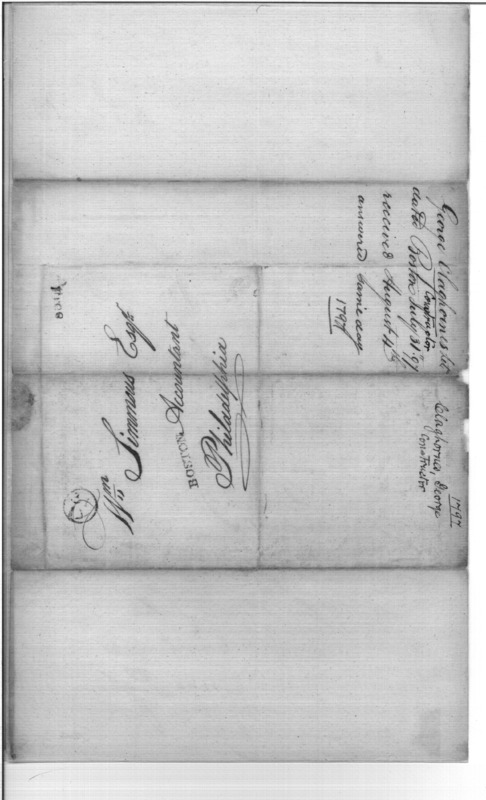 George Claghorne's let
Constructor
dated Boston July 31st 97
received August 4th
answered same day
1797
1797
Claghorne, George
Constructor
Wm Simmons Esqr
Accountant
BOSTON
Philadelphia